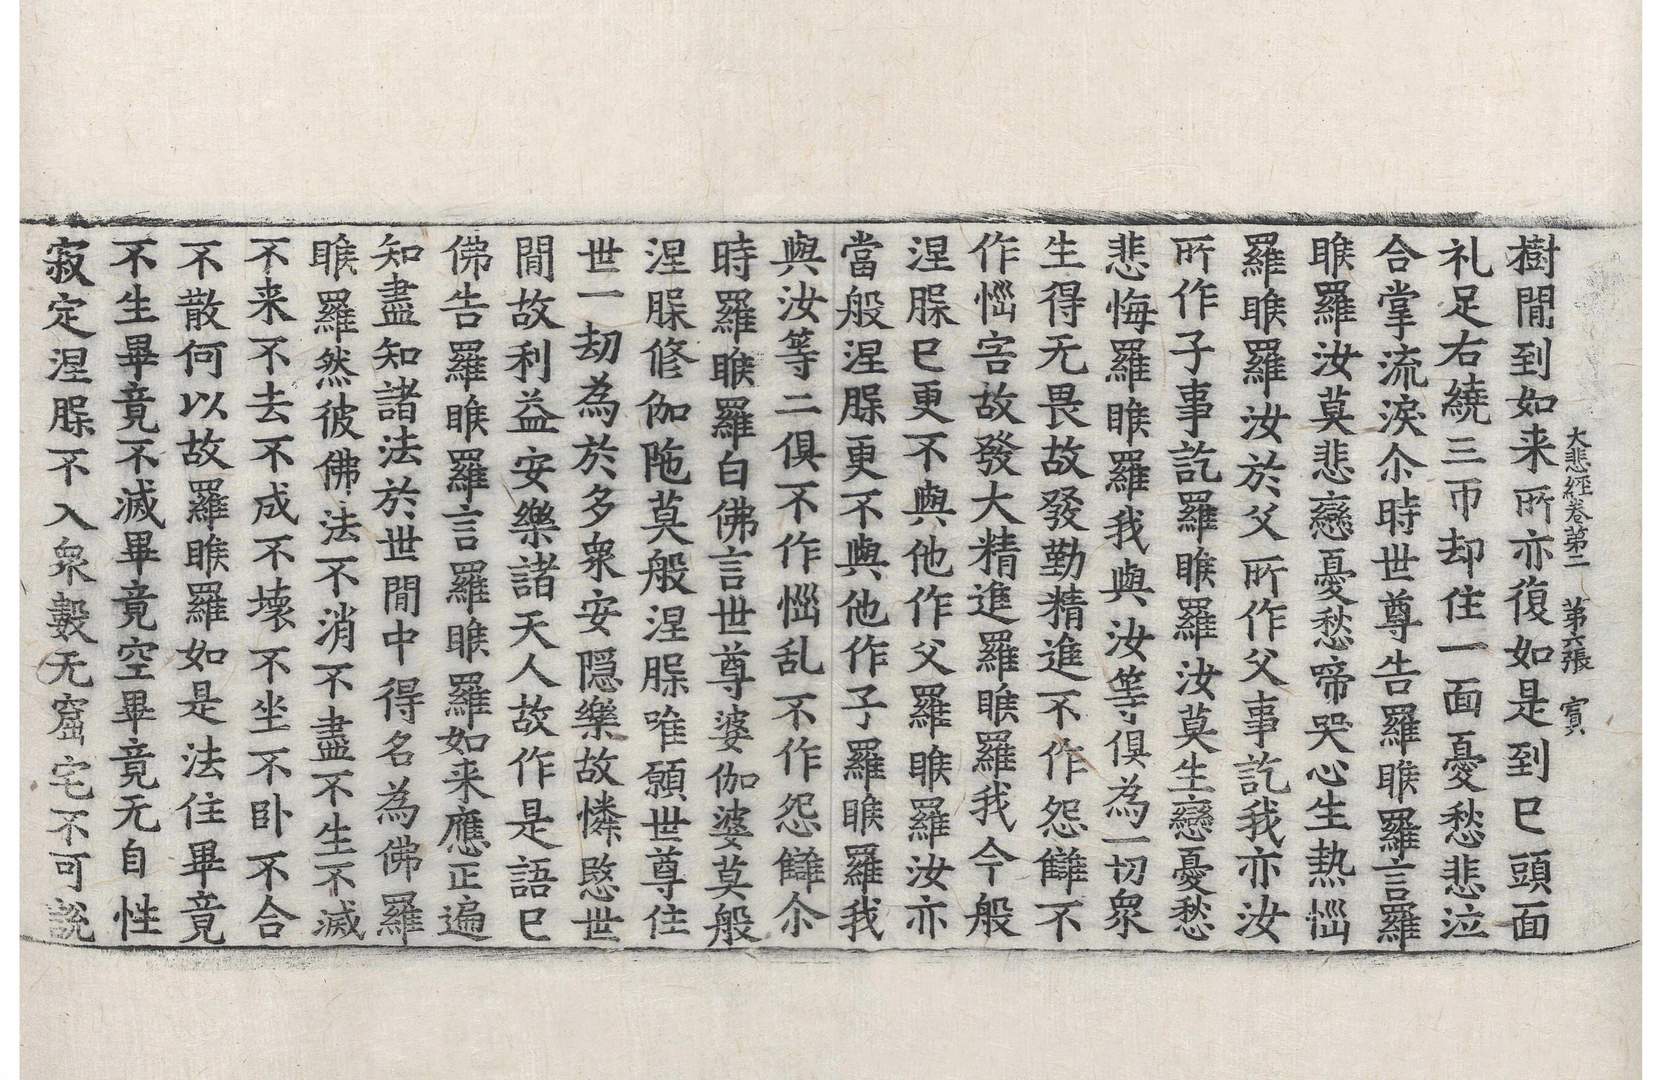 大悲経卷第二　第六張　賓
樹間到如来所亦復如是到已頭面
礼足右繞三帀却住一面憂愁悲泣
合掌流淚尒時世尊告羅睺羅言羅
睺羅汝莫悲戀憂愁啼哭心生熱惱
羅睺羅汝於父所作父事訖我亦汝
所作子事訖羅睺羅汝莫生戀憂愁
悲悔羅睺羅我與汝等俱為一切衆
生得无畏故發勤精進不作怨讎不
作惱害故發大精進羅睺羅我今般
涅脲已更不與他作父羅睺羅汝亦
當般涅脲更不與他作子羅睺羅我
與汝等二俱不作惱乱不作怨讎尒
時羅睺羅白佛言世尊婆伽婆莫般
涅脲修伽陁莫般涅脲唯願世尊住
世一劫為於多衆安隱樂故憐愍世
間故利益安樂諸天人故作是語已
佛告羅睺羅言羅睺羅如来應正遍
知盡知諸法於世間中得名為佛羅
睺羅然彼佛法不消不盡不生不滅
不来不去不成不壊不坐不卧不合
不散何以故羅睺羅如是法住畢竟
不生畢竟不滅畢竟空畢竟无自性
寂定涅脲不入衆數无窟宅不可說